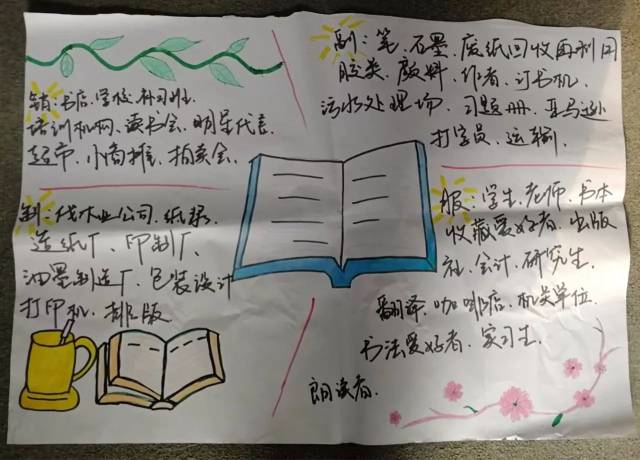 销：书店、学校、补习班、
培训机构、读书会、明星代言、
超市、小商摊、拍卖会、
副：笔、石墨、废纸回收再利用
胶类、废料、作者、订书机、
污水处理场、习题册、亚马逊
打字员、运输、
制：伐木业公司、纸浆、
造纸厂、印制厂、
油墨制造厂、包装设计
打印机、排版
服：学生、老师、书本
收藏爱好者、出版
社、会计、研究生、
翻译、咖啡店、机关单位、
书法爱好者、实习生、
朗读者、